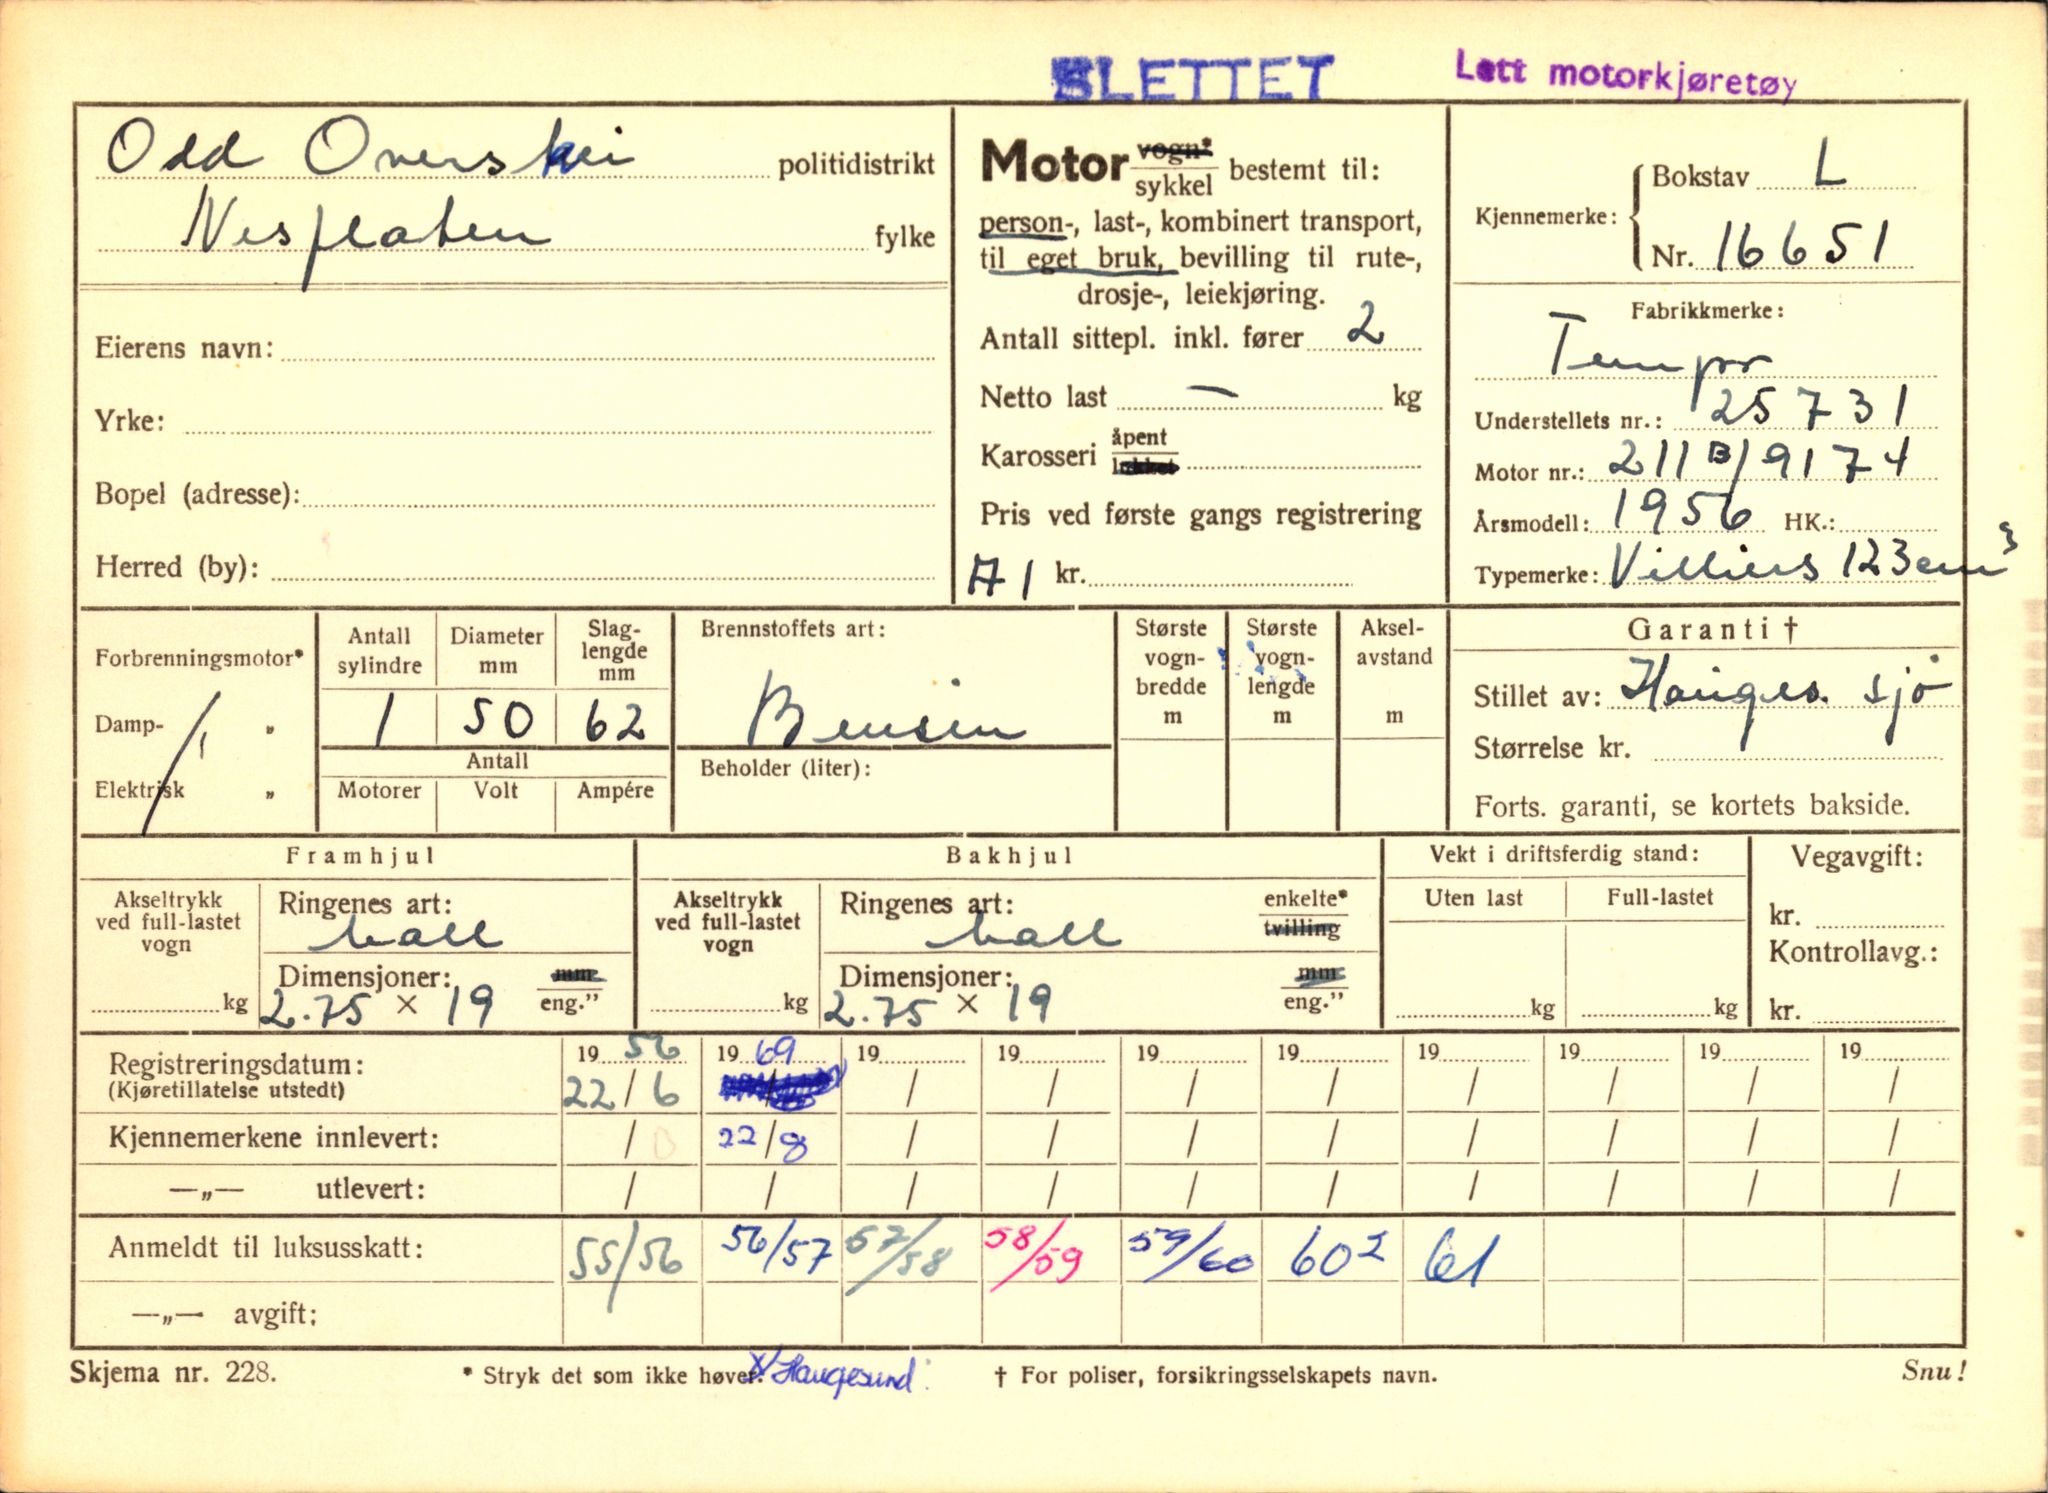 SLETTET
Lett motorkjøretøy
Odd politidistrikt
Nesflaten fylke
Eierens navn:
Yrke:
Bopel (adresse):
Herred (by):
Motor vogn* sykkel bestemt til:
person-, last-, kombinert transport,
til eget bruk, bevilling til rute-,
drosje-, leiekjøring.
Antall sittepl. inkl. fører 2
Netto last — kg
Karosseri åpent lukket
Pris ved første gangs registrering
A1 kr.
Kjennemerke: Bokstav L
Nr. 16651
Fabrikkmerke:
Tempo
Understellets nr.: 25731
Motor nr.: 211B/9174
Årsmodell: 1956 HK.:
Typemerke: Villiers 123 cm³
Forbrenningsmotor*
Damp- „
Elektrisk „
Antall sylindre
Diameter mm
Slag-lengde mm
1 50 62
Antall
Motorer Volt Ampére
Brennstoffets art:
Bensin
Beholder (liter):
Største vogn-bredde m
Største vogn-lengde m
Aksel-avstand m
Garanti †
Stillet av: Hauges. sjø
Størrelse kr.
Forts. garanti, se kortets bakside.
Framhjul
Akseltrykk ved full-lastet vogn
kg
Ringenes art:
ball
Dimensjoner: mm
2.75 × 19 eng.”
Bakhjul
Akseltrykk ved full-lastet vogn
kg
Ringenes art: enkelte* tvilling
ball
Dimensjoner: mm
2.75 × 19 eng.”
Vekt i driftsferdig stand:
Uten last Full-lastet
kg kg
Vegavgift:
kr.
Kontrollavg.:
kr.
Registreringsdatum: 19 56 19 69 19 19 19 19 19 19 19 19
(Kjøretillatelse utstedt) 22/6 / / / / / / / / /
Kjennemerkene innlevert: / 22/8 / / / / / / / /
—„— utlevert: / / / / / / / / / /
Anmeldt til luksusskatt: 55/56 56/57 57/58 58/59 59/60 60² 61
—„— avgift:
Skjema nr. 228.
* Stryk det som ikke høver. x/ Haugesund.
† For poliser, forsikringsselskapets navn.
Snu!